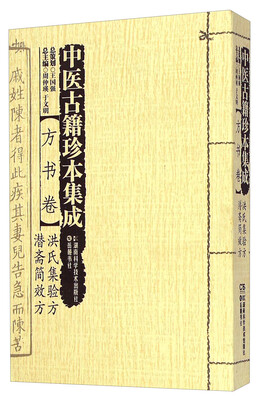 中医古籍珍本集成
总策划◎王国强
总主编◎周仲瑛 于文明
【方书卷】
洪氏集验方
潜斋简效方
湖南科学技术出版社
岳麓书社
戚姓陳者得此疾其妻兒告急而陳苦
中医古籍珍本集成
【方书卷】
洪氏集验方
潜斋简效方